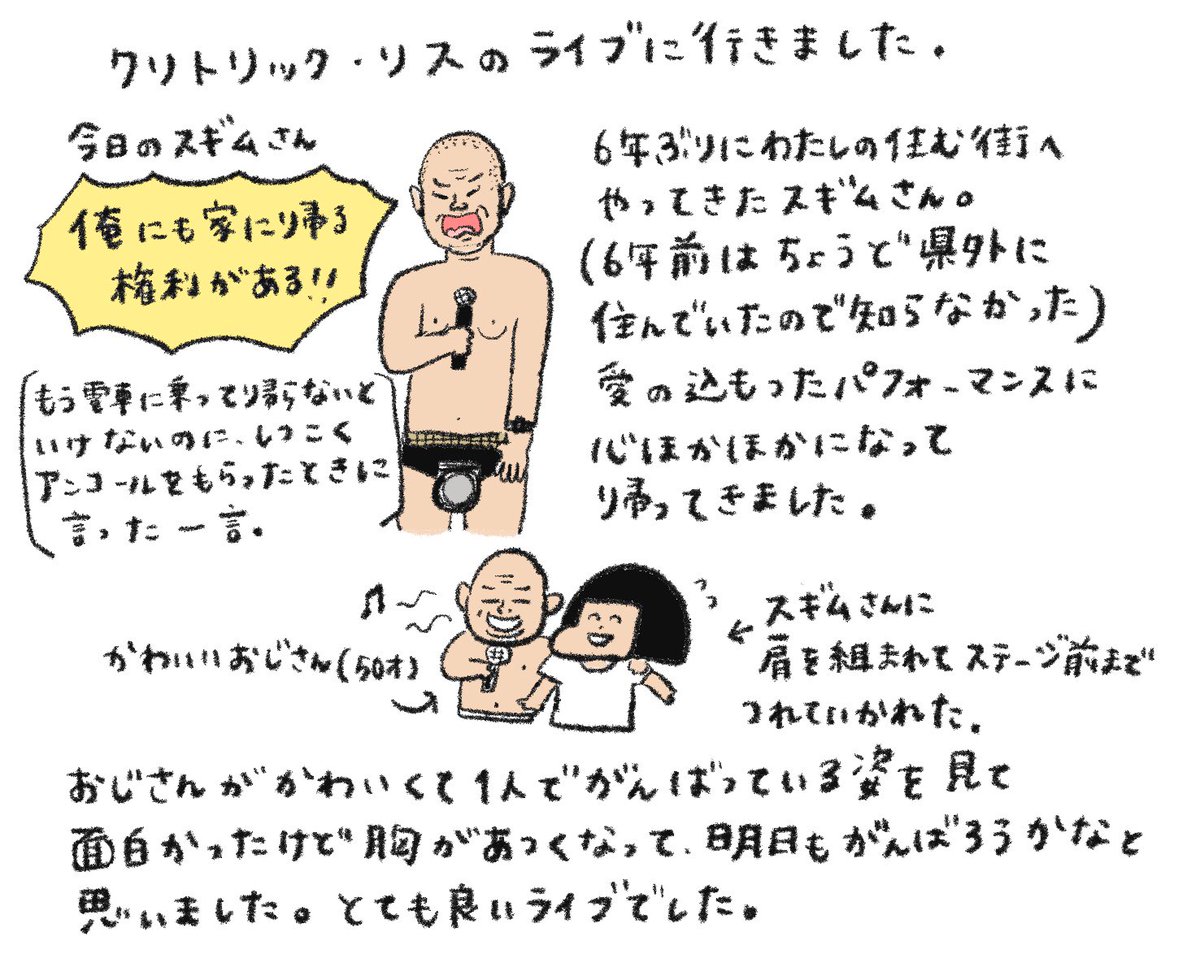 クリトリック・リスのライブに行きました.
今日のスギムさん
俺にも家に帰る
権利がある!!
(もう電車に乗って帰らないと
いけないのに、しつこく
アンコールをもらったときに
言った一言。)
6年ぶりにわたしの住む街へ
やってきたスギムさん。
(6年前はちょうど県外に
住んでいたので知らなかった)
愛の込もったパフォーマンスに
心ほかほかになって
帰ってきました。
かわいいおじさん(50才)
←スギムさんに
肩を組まれてステージ前まで
つれていかれた.
おじさんがかわいくて1人でがんばっている姿を見て
面白かったけど胸があつくなって、明日もがんばろうかなと
思いました。とても良いライブでした。